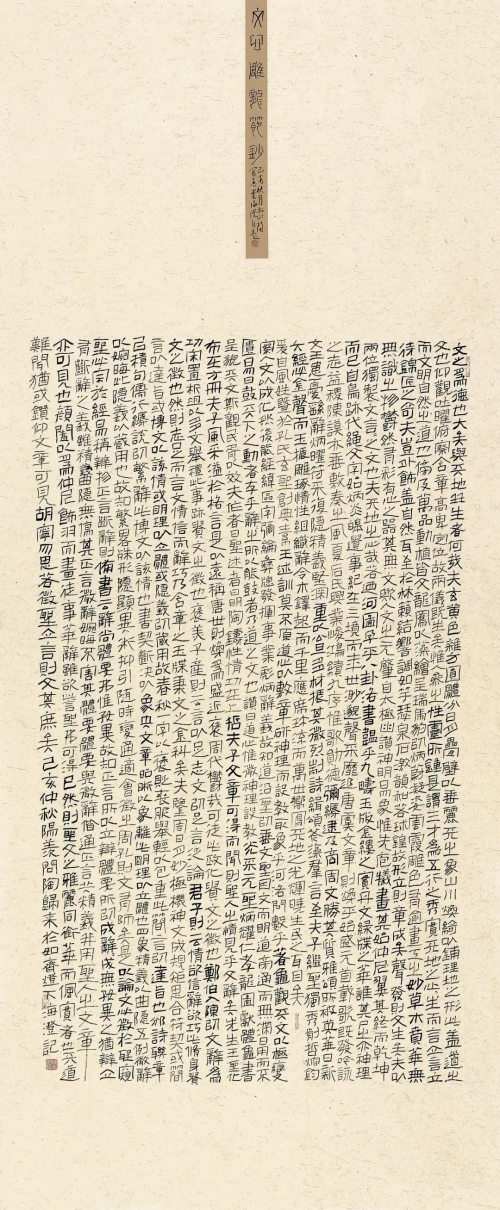 文心雕龍節鈔
文之為德也大矣與天地並生者何哉夫玄黃色雜方圓體分日月疊璧以垂麗天之象山川煥綺以鋪理地之形此蓋道之
文也仰觀吐曜俯察含章高卑定位故兩儀既生矣惟人參之性靈所鍾是謂三才為五行之秀實天地之心生而言立言立
而文明自然之道也傍及萬品動植皆文龍鳳以藻繪呈瑞虎豹以炳蔚凝姿雲霞雕色有踰畫工之妙草木賁華無
待錦匠之奇夫豈外飾蓋自然耳至於林籟結響調如竽瑟泉石激韻和若球鍠故形立則章成矣聲發則文生矣夫以
無識之物鬱然有彩有心之器其無文歟人文之元肇自太極幽讚神明易象惟先庖犧畫其始仲尼翼其終而乾坤
兩位獨制文言言之文也天地之心哉若迺河圖孕乎八卦洛書韞乎九疇玉版金鏤之實丹文綠牒之華誰其尸之亦神理
而已自鳥跡代繩文字始炳炎皞遺事紀在三墳而年世渺邈聲采靡追唐虞文章則煥乎始盛元首載歌既發吟詠
之志益稷陳謨亦垂敷奏之風夏后氏興業峻鴻績九序惟歌勳德彌縟逮及商周文勝其質雅頌所被英華日新
文王患憂繇辭炳曜符采複隱精義堅深重以公旦多材振其徽烈剬詩緝頌斧藻群言至夫子繼聖獨秀前哲熔鈞
六經必金聲而玉振雕琢情性組織辭令木鐸起而千里應席珍流而萬世響寫天地之光輝曉生民之耳目矣
爰自風姓暨於孔氏玄聖創典素王述訓莫不原道心以敷章研神理而設教取象乎河洛問數乎蓍龜觀天文以極變
察人文以成化然後能經緯區宇彌綸彝憲發揮事業彪炳辭義故知道沿聖以垂文聖因文而明道旁通而無滯日用而不
匱易曰鼓天下之動者存乎辭辭之所以能鼓天下者迺道之文也讚曰道心惟微神理設教光采元聖炳耀仁孝龍圖獻體龜書
呈貌天文斯觀民胥以效夫作者曰聖述者曰明陶鑄性情功在上哲夫子文章可得而聞則聖人之情見乎文辭矣先王聖化
布在方冊夫子風采溢於格言是以遠稱唐世則煥乎為盛近褒周代則郁哉可從此政化貴文之徵也鄭伯入陳以文辭為
功宋置折俎以多文舉禮此事跡貴文之徵也褒美子產則云言以足志文以足言泛論君子則云情欲信辭欲巧此修身貴
文之徵也然則志足而言文情信而辭巧迺含章之玉牒秉文之金科矣夫鑒周日月妙極機神文成規矩思合符契或簡
言以達旨或博文以該情或明理以立體或隱義以藏用故春秋一字以褒貶喪服舉輕以包重此簡言以達旨也邠詩聯章
以積句儒行縟說以繁辭此博文以該情也書契斷決以象夬文章昭晰以象離此明理以立體也四象精義以曲隱五例微辭
以婉晦此隱義以藏用也故知繁略殊形隱顯異術抑引隨時變通適會徵之周孔則文有師矣是以論文必徵於聖窺
聖必宗於經易稱辨物正言斷辭則備書云辭尚體要弗惟好異故知正言所以立辯體要所以成辭辭成無好異之尤辯立
有斷辭之義雖精義曲隱無傷其正言微辭婉晦不害其體要體要與微辭偕通正言共精義並用聖人之文章
亦可見也顏闔以為仲尼飾羽而畫徒事華辭雖欲訾聖弗可得已然則聖文之雅麗固銜華而佩實者也天道
難聞猶或鑽仰文章可見胡寧勿思若徵聖立言則文其庶矣己亥仲秋海澄記